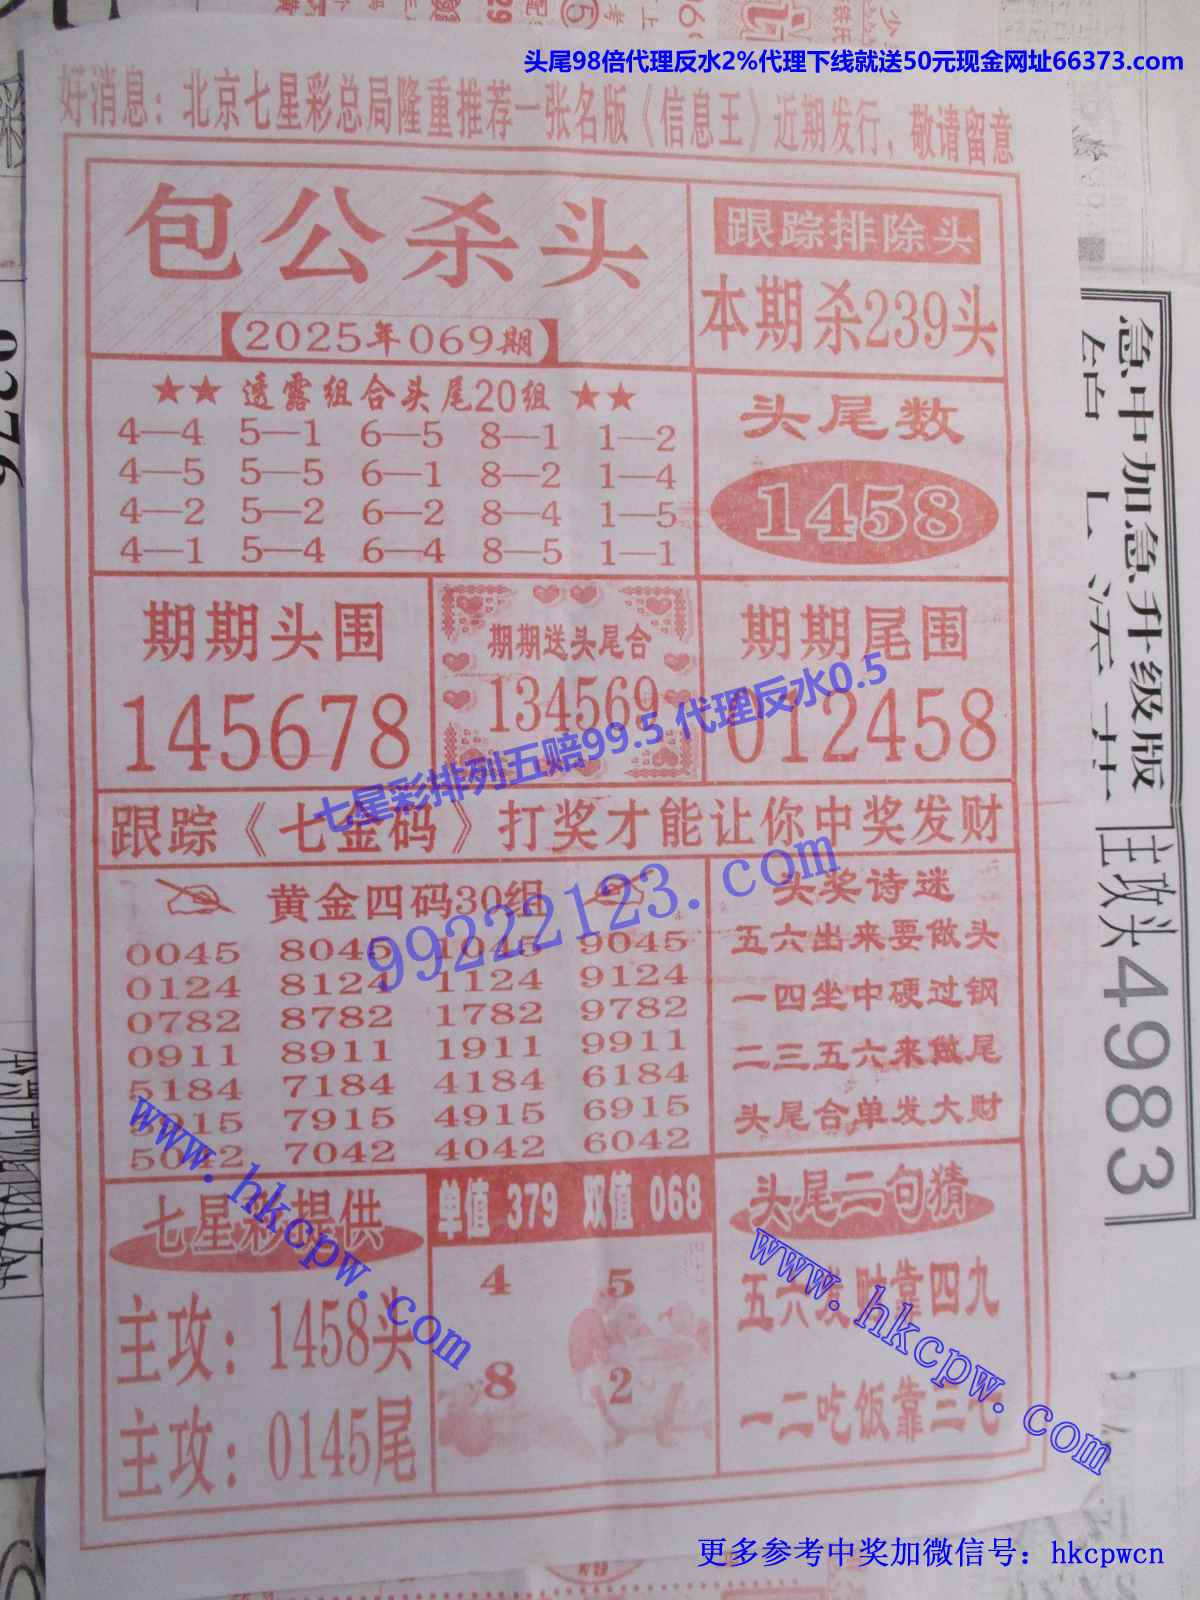 头尾98倍代理反水2%代理下线就送50元现金网址66373.com
好消息：北京七星彩总局隆重推荐一张名版《信息王》近期发行，敬请留意
包公杀头
【2025年069期】
跟踪排除头
本期杀239头
★★ 透露组合头尾20组 ★★
4—4 5—1 6—5 8—1 1—2
4—5 5—5 6—1 8—2 1—4
4—2 5—2 6—2 8—4 1—5
4—1 5—4 6—4 8—5 1—1
头尾数
1458
期期头围
145678
期期送头尾合
134569
期期尾围
012458
七星彩排列五赔99.5 代理反水0.5
跟踪《七金码》打奖才能让你中奖发财
99222123.com
黄金四码30组
0045 8045 1045 9045
0124 8124 1124 9124
0782 8782 1782 9782
0911 8911 1911 9911
5184 7184 4184 6184
5915 7915 4915 6915
5042 7042 4042 6042
头奖诗迷
五六出来要做头
一四坐中硬过钢
二三五六来做尾
头尾合单发大财
www.hkcpw.com
七星彩提供
主攻：1458头
主攻：0145尾
单值 379 双值 068
4 5
8 2
头尾二句猜
五六发财靠四九
一二吃饭靠三七
www.hkcpw.com
急中加急升级版
主攻头4983
更多参考中奖加微信号：hkcpwcn